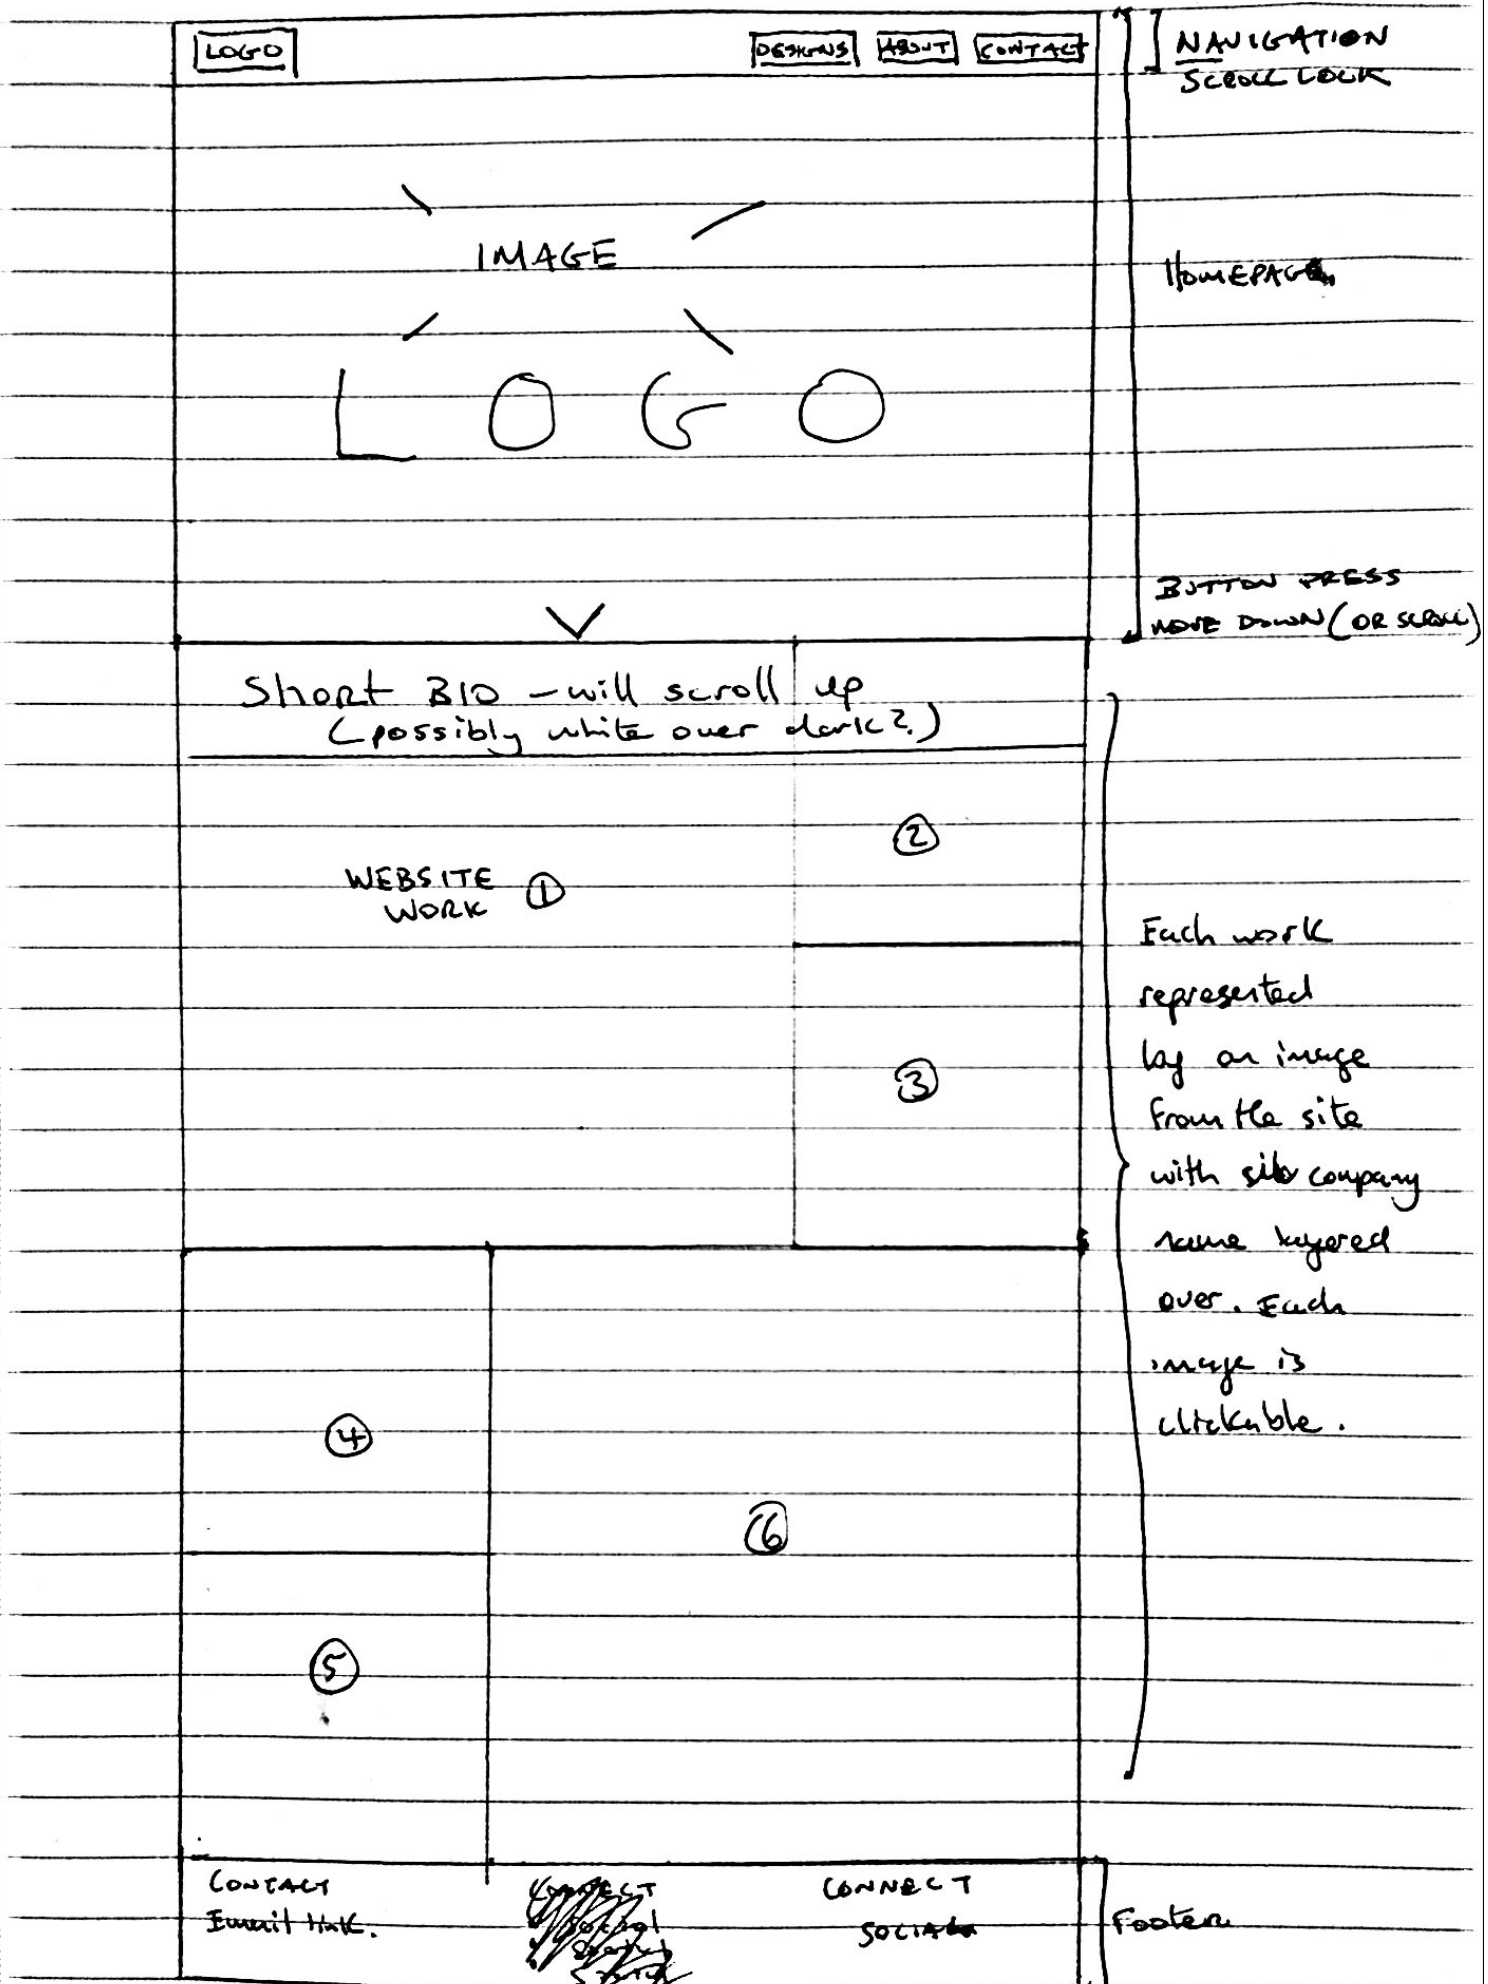 LOGO
DESIGNS ABOUT CONTACT
NAVIGATION
SCROLL LOCK
IMAGE
HOMEPAGE
LOGO
BUTTON PRESS
MOVE DOWN (OR SCROLL)
Short BIO - will scroll up
(possibly white over dark?)
WEBSITE
WORK ①
②
③
Each work
represented
by an image
from the site
with company
name layered
over. Each
image is
clickable.
④
⑥
⑤
CONTACT
Email link.
CONNECT
SOCIAL
Footer